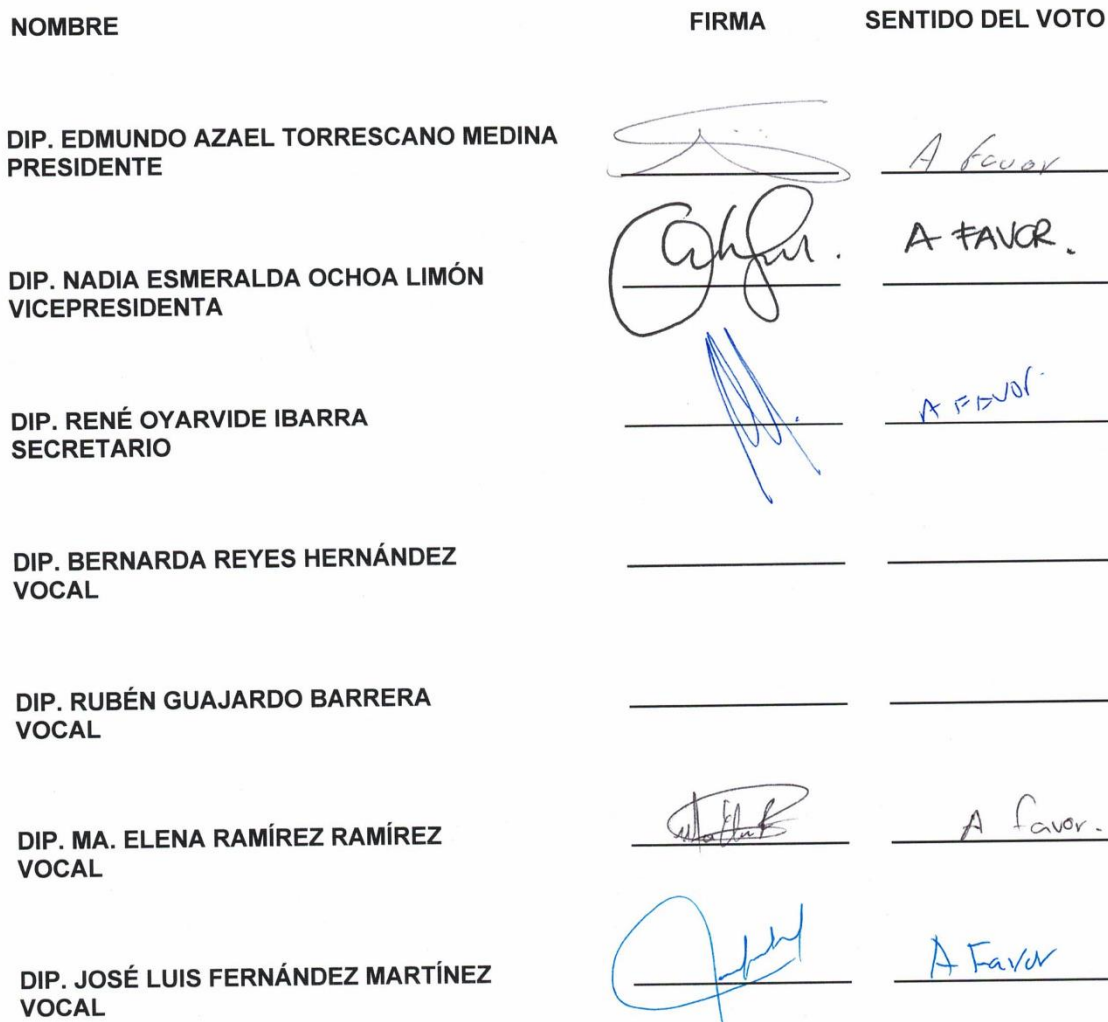 NOMBRE FIRMA SENTIDO DEL VOTO
DIP. EDMUNDO AZAEL TORRESCANO MEDINA
PRESIDENTE
A Favor
A FAVOR.
DIP. NADIA ESMERALDA OCHOA LIMÓN
VICEPRESIDENTA
DIP. RENÉ OYARVIDE IBARRA
SECRETARIO
A FAVOR
DIP. BERNARDA REYES HERNÁNDEZ
VOCAL
DIP. RUBÉN GUAJARDO BARRERA
VOCAL
DIP. MA. ELENA RAMÍREZ RAMÍREZ
VOCAL
A favor.
DIP. JOSÉ LUIS FERNÁNDEZ MARTÍNEZ
VOCAL
A Favor